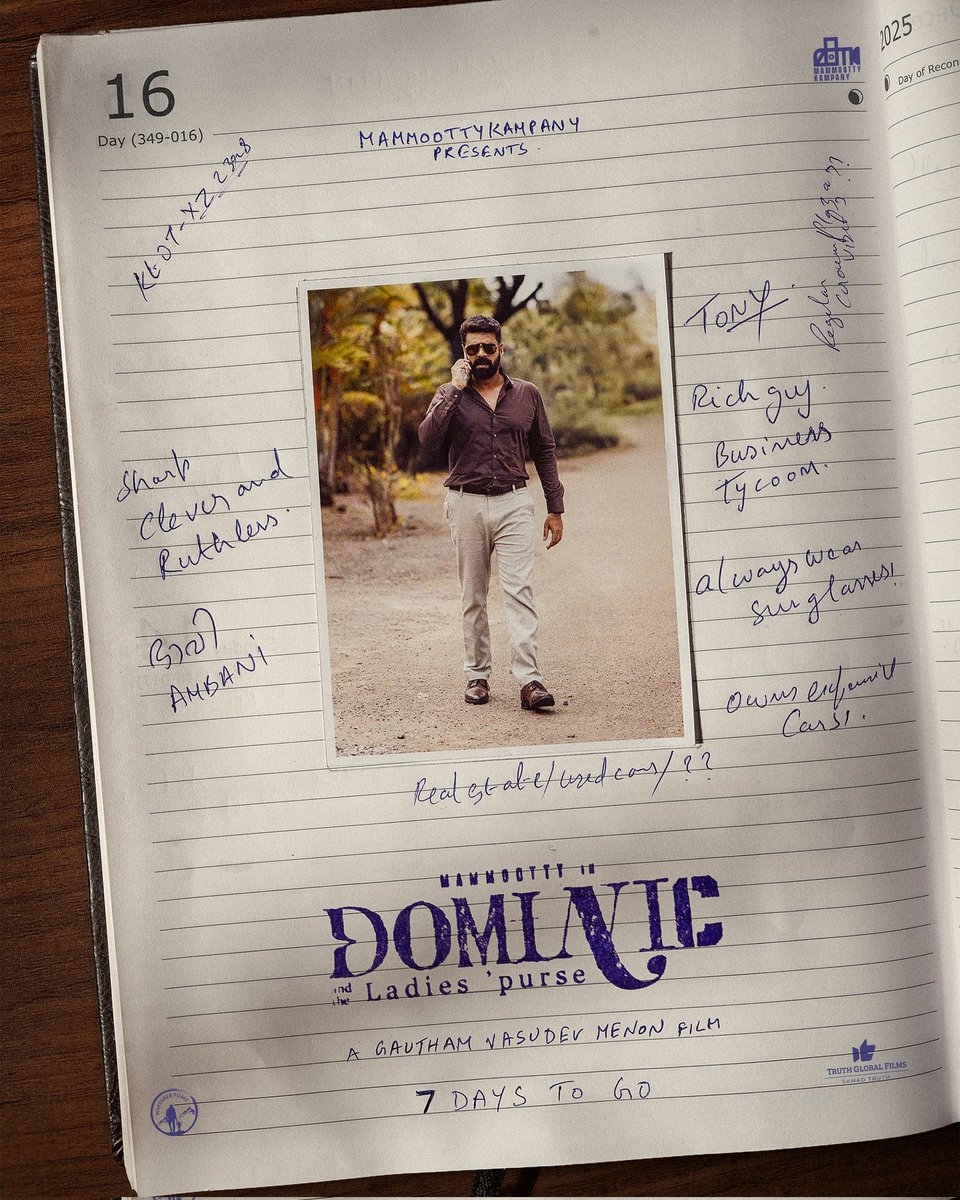 16
Day (349-016)
MAMMOOTTY
KAMPANY
2025
Day of Recon
MAMMOOTTYKAMPANY
PRESENTS.
KL07-XZ
Regular
vibes ??
TONY.
Rich guy.
Business
Tycoon.
Sharp
Clever and
Ruthless.
always wear
sunglasses!
ഭാവി
AMBANI
Owns expensive
Cars!.
Real estate/used cars/??
MAMMOOTTY IN
DOMINIC
and the Ladies 'purse
A GAUTHAM VASUDEV MENON FILM
7 DAYS TO GO
TRUTH GLOBAL FILMS
SAMAD TRUTH
WAYFARER FILMS